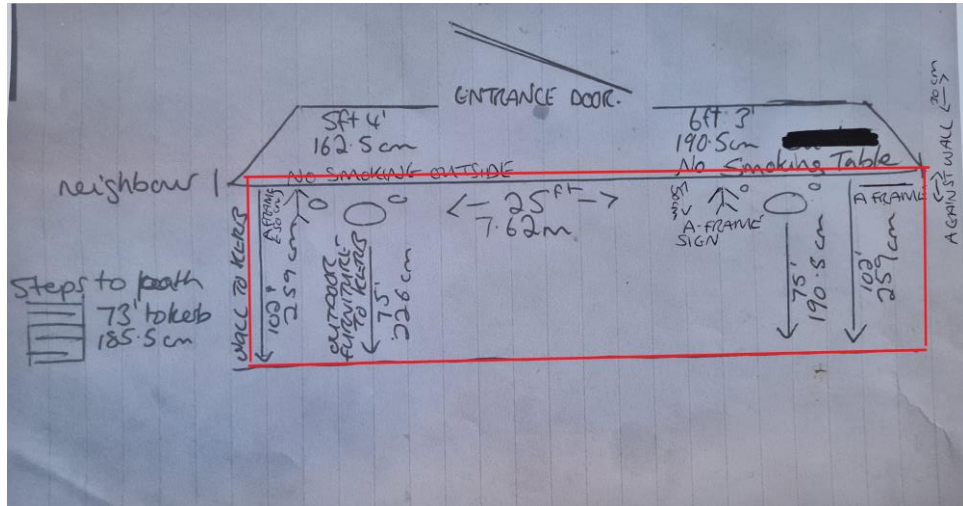 ENTRANCE DOOR.
5ft 4'
162.5cm
6ft. 3'
190.5cm
No Smoking Table
NO SMOKING OUTSIDE
neighbour
AGAINST WALL 20cm
WALL TO KERB
102'
259cm
A FRAME
50cm
OUTDOOR
FURNITURE
TO KERB
75'
226cm
25ft
7.62m
50cm
A-FRAME
SIGN
75'
190.5cm
A FRAME
102'
259cm
Steps to path
73' to kerb
185.5cm